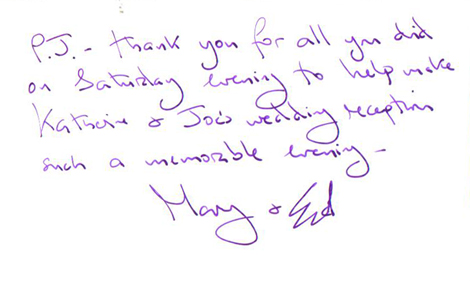 P.J. - thank you for all you did
on Saturday evening to help make
Katherine & Joe's wedding reception
such a memorable evening -
Mary & Ed